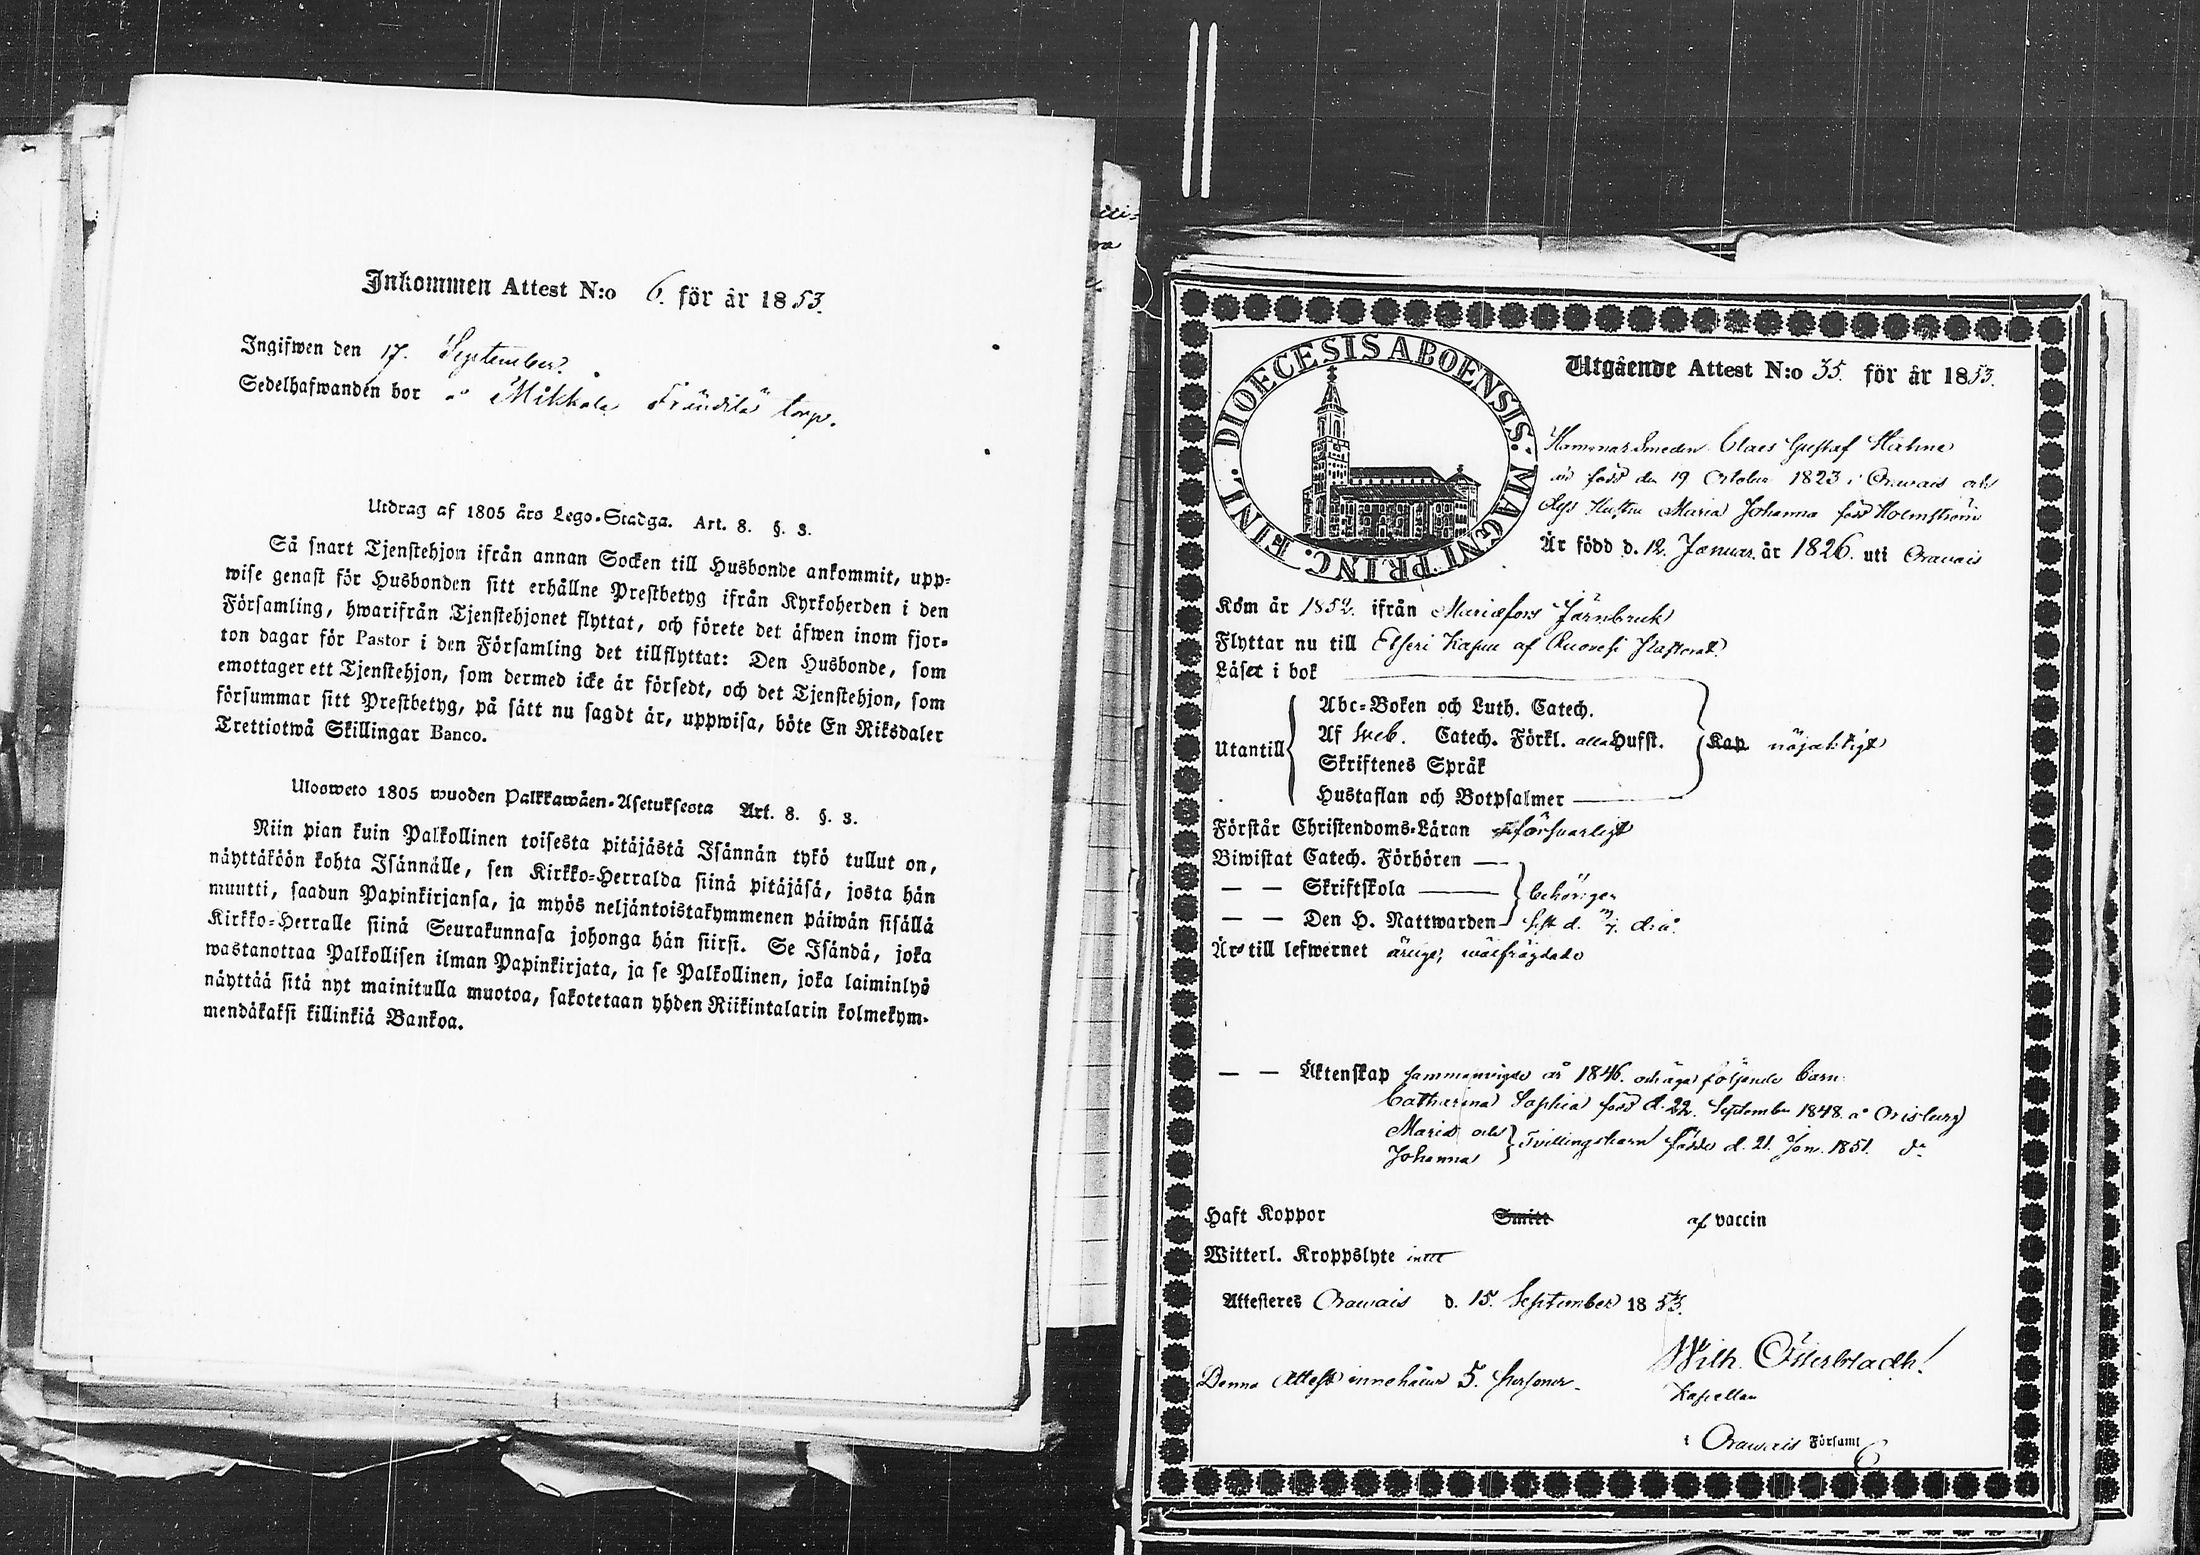 Inkommen Attest N:o 6. för år 1853.
Ingifwen den 17. September.
Sedelhafwanden bor å Mikkola Frändilä torp.
Utdrag af 1805 års Lego-Stadga. Art. 8. §. 3.
Så snart Tjenstehjon ifrån annan Socken till Husbonde ankommit, upp-
wise genast för Husbonden sitt erhållne Prestbetyg ifrån Kyrkoherden i den
Församling, hwarifrån Tjenstehjonet flyttat, och förete det äfwen inom fjor-
ton dagar för Pastor i den Församling det tillflyttat: Den Husbonde, som
emottager ett Tjenstehjon, som dermed icke är försedt, och det Tjenstehjon, som
försummar sitt Prestbetyg, på sätt nu sagdt är, uppwisa, böte En Riksdaler
Trettiotwå Skillingar Banco.
Ulosweto 1805 wuoden Palkkawäen-Asetuksesta Art. 8. §. 3.
Niin pian kuin Palkollinen toisesta pitäjästä Isännän tykö tullut on,
näyttäköön kohta Isännälle, sen Kirkko-Herralda siinä pitäjäsä, josta hän
muutti, saadun Papinkirjansa, ja myös neljäntoistakymmenen päiwän sisällä
Kirkko-Herralle siinä Seurakunnasa johonga hän siirsi. Se Isändä, joka
wastanottaa Palkollisen ilman Papinkirjata, ja se Palkollinen, joka laiminlyö
näyttää sitä nyt mainitulla muotoa, sakotetaan yhden Riikintalarin kolmekym-
mendäkaksi killinkiä Bankoa.
DIOECESIS ABOENSIS. MAGNI PRINC. FINL.
Utgående Attest N:o 35. för år 1853.
Hammarsmeden Claes Gustaf
är född den 19 October 1823 i Orawais och
dess Hustru Maria Johanna född Holmström
Är född d. 12. Januar. år 1826. uti Orawais
Kom år 1852. ifrån Mariefors Järnbruk
Flyttar nu till Etseri Kapell af Ruovesi Pastorat.
Läser i bok
Abc-Boken och Luth. Catech.
Utantill Af Sveb. Catech. Förkl. alla Hufst. Kap nöjaktigt
Skriftenes Språk
Hustaflan och Botpsalmer
Förstår Christendoms-Läran försvarligt
Biwistat Catech. Förhören
— — Skriftskola behörigen
— — Den H. Nattwarden sist d. d. å.
Är till lefwernet ärlige, wälfrägdade
— — Äktenskap sammanvigde år 1846. och äga följande barn
Catharina Sophia född d. 22. September 1848. å Orisberg
Maria och
Johanna Tvillingsbarn födde d. 21. Jan. 1851. do
Haft Koppor Smitt af vaccin
Witterl. Kroppslyte intet
Attesteres Orawais d. 15. September 1853.
Wilh. Österbladh.
Denna Attest innehåller 5. personer.
Kapellan
i Orawais Församl